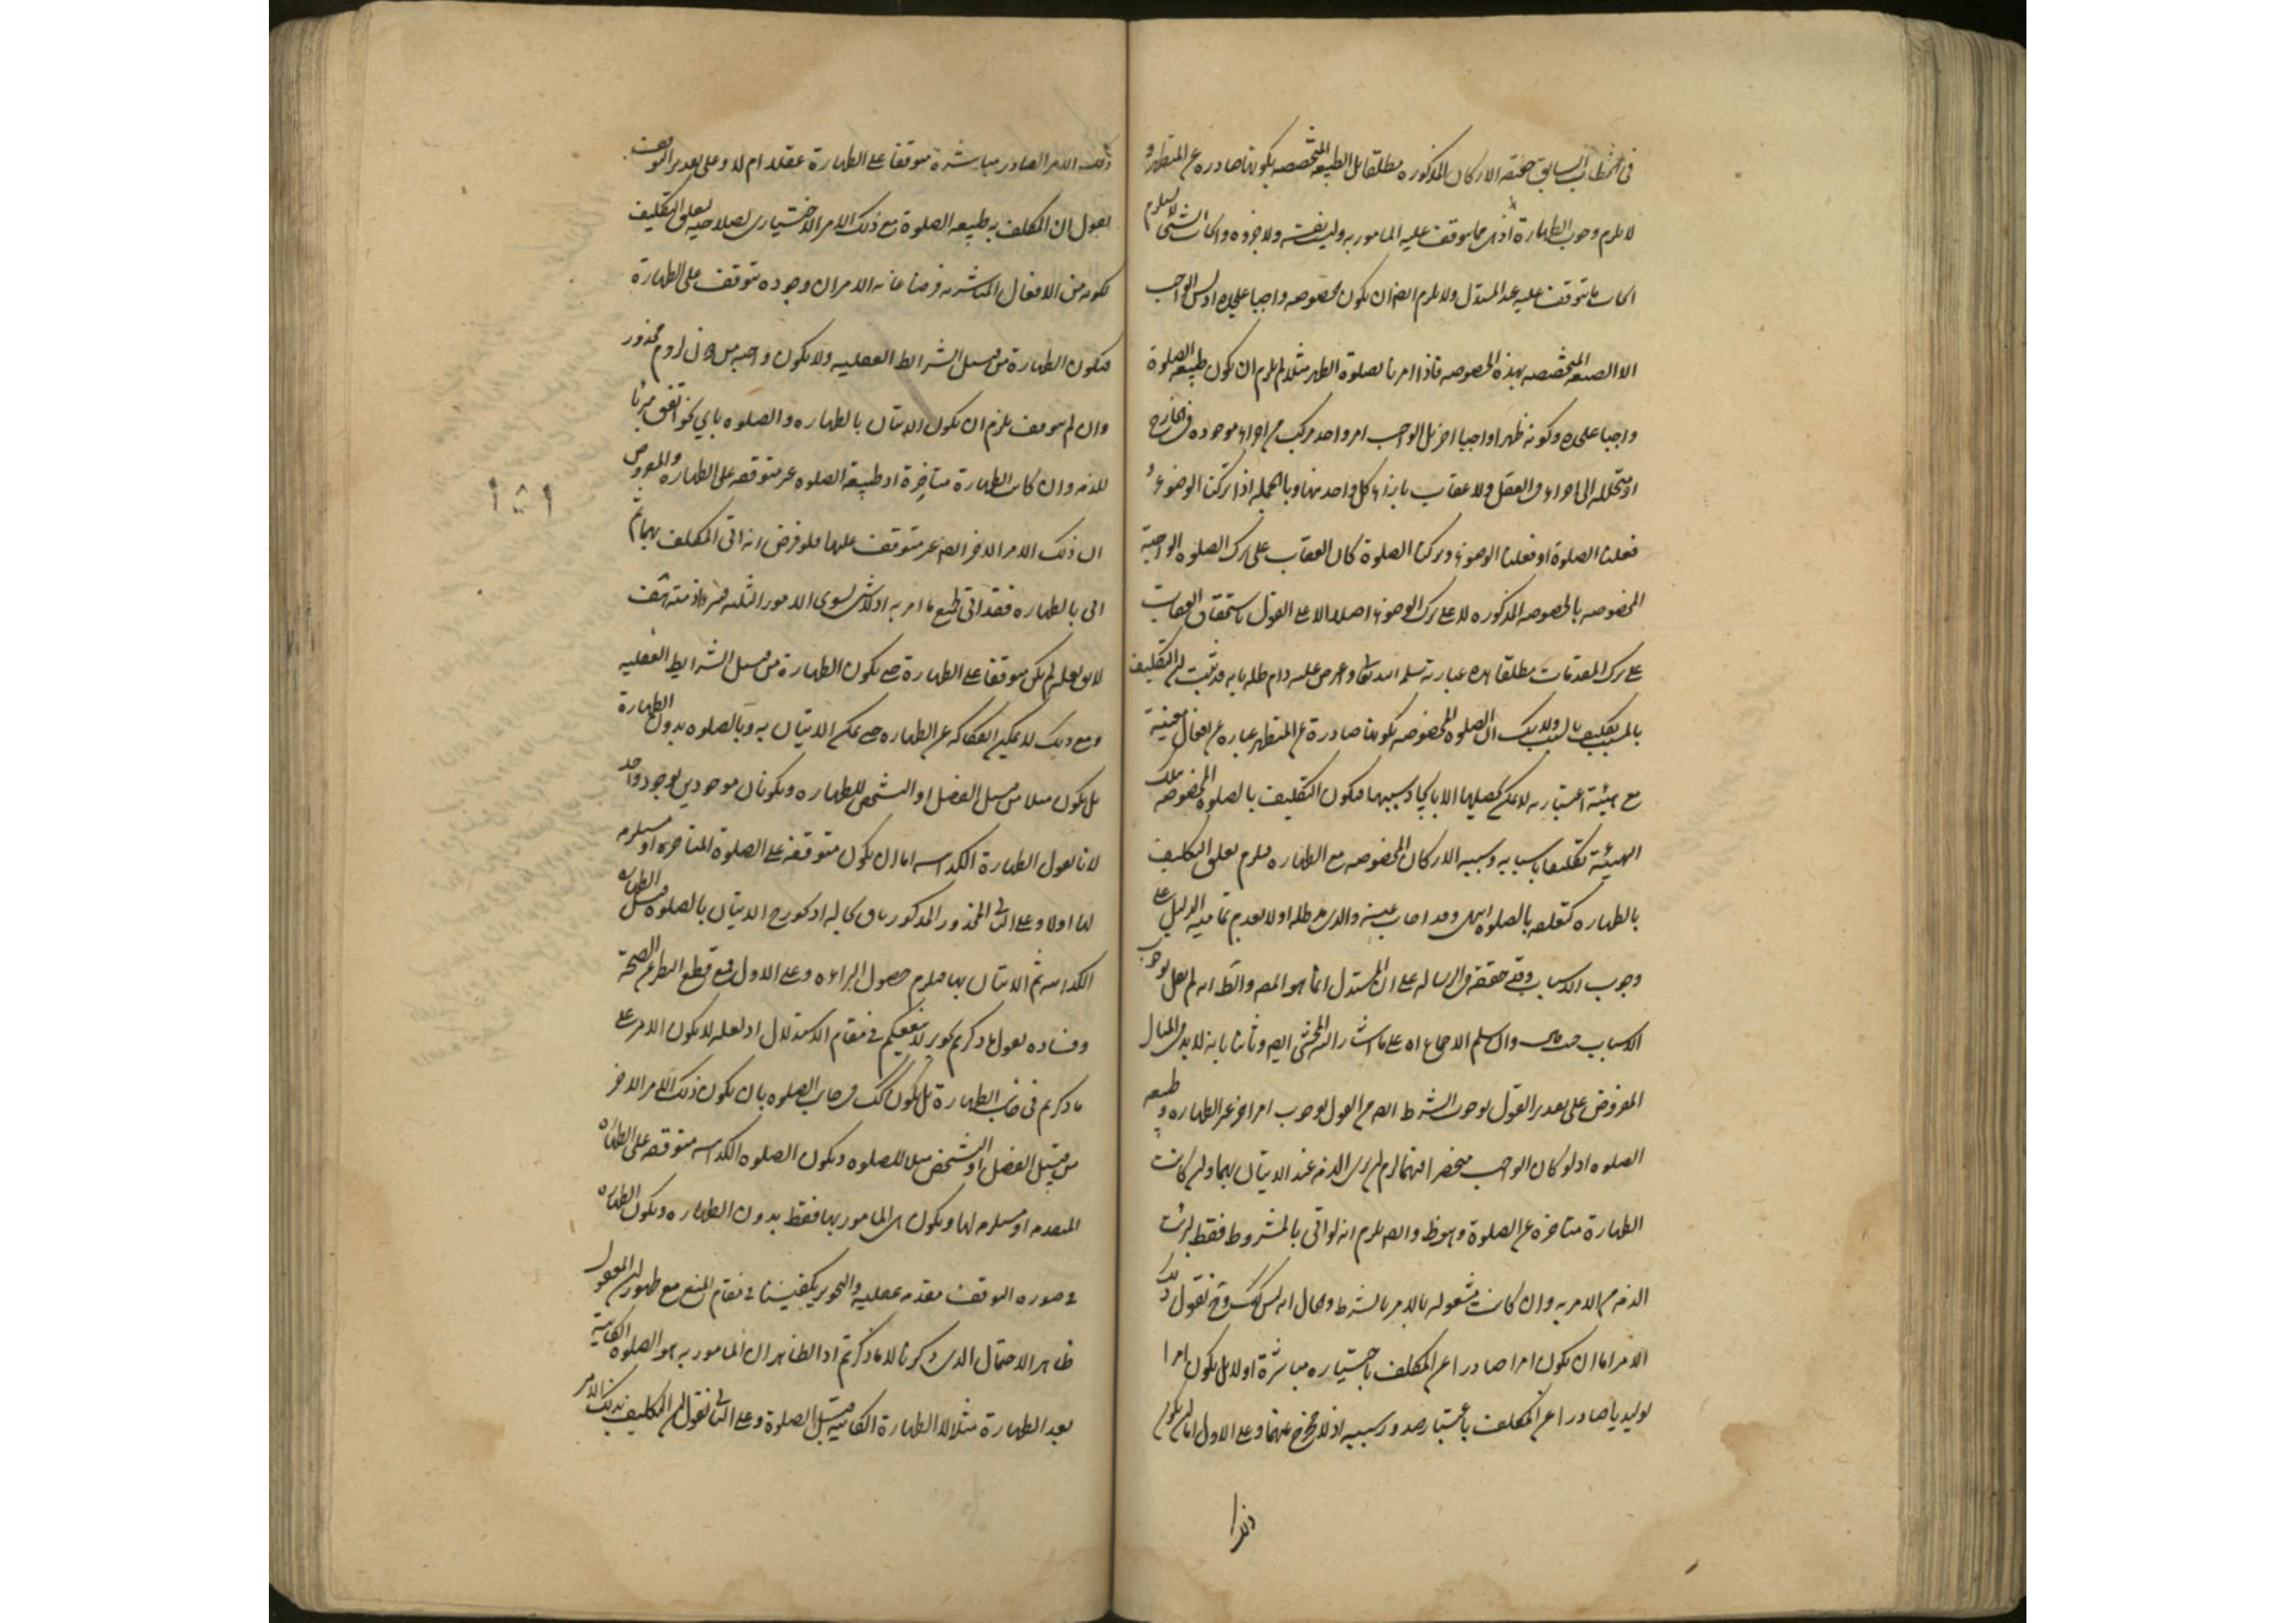 في الخطاب السابق حقيقة الاركان المذكورة مطلقا بل الطبيعة المتخصصة بكونها صادرة عن المتطهر و
لا يلزم وجوب الطهارة اذ هى مما يتوقف عليه المامور به وليت نفسه ولا جزوه وايجاب الشئ لا يستلزم
ايجاب ما يتوقف عليه عند المستدل ولا يلزم ايضا ان يكون بخصوصه واجبا عليحده اذ ليس الواجب
الا الصيغة المتخصصة بهذه الخصوصه فاذا امرنا بصلوة الظهر مثلا لم يلزم ان يكون طبيعة الصلوة
واجبا عليحده وكونه ظهرا واجبا اخر بل الواجب امر واحد مركب من اجزاء موجودة في الخارج
او متحللة الى اجزاء في العقل ولا عقاب بازاء كل واحد منها وبالجملة اذا تركنا الوضوء و
فعلنا الصلوة او فعلنا الوضوء وتركنا الصلوة كان العقاب على ترك الصلوة الواجبة
المخصوصه بالخصوصه المذكوره لا على ترك الوضوء اصلا الا على القول باستحقاق العقاب
على ترك المقدمات مطلقا هذه عبارته سلمه الله تعالى واعرض عليه دام ظله بانه قد ثبت ان التكليف
بالمسبب تكليف بالسبب ولا شك ان الصلوة المخصوصه بكونها صادرة عن المتطهر عباره عن افعال معينة
مع هيئة اعتباريه لا يمكن تحصيلها الا بايجاد سببها فيكون التكليف بالصلوة المخصوصة بتلك
الهيئة تكليفا باسبابه وسببه الاركان المخصوصه مع الطهاره فيلزم تعلق التكليف
بالطهاره كتعلقه بالصلوة انتهى وقد اجاب عنه والدى مد ظله اولا بعدم تمامية الدليل على
وجوب الاسباب وقد حققه في الرساله على ان المستدل انما هو المص والظ انه لم يقل بوجوب
الاسباب حيث قال وان سلم الاجماع اه على ما اشار اليه المحشى ايض وثانيا بانه لا بد في المثال
المفروض على تقدير القول بوجوب الشرط ايض من القول بوجوب امر اخر غير الطهاره و طبيعة
الصلوه اذ لو كان الواجب منحصرا فيهما لزم ان يبرى الذمه عند الاتيان بهما وان كانت
الطهارة متاخرة عن الصلوة وهو ظ وايض يلزم انه لو اتى بالمشروط فقط برئت
الذمه من الامر به وان كانت مشغوله بالامر بالشرط والحال انه ليس كك وح نقول ذلك
الامر اما ان يكون امرا صادرا عن المكلف باختياره مباشرة او لا بل يكون امرا
توليديا صادرا عن المكلف باعتبار صدور سببه اذ لا مخرج عنهما وعلى الاول اما ان يكون
ذلك
ذلك الامر الصادر مباشرة متوقفا على الطهارة عقلا ام لا وعلى تقدير التوقف
نقول ان المكلف به طبيعة الصلوة مع ذلك الامر الاختيارى لصلاحيته لتعلق التكليف
لكونه من الافعال المباشريه فرضا غاية الامر ان وجوده يتوقف على الطهارة
فيكون الطهارة من قبيل الشرائط العقليه ولا يكون واجبه من دون لزوم محذور
وان لم يتوقف يلزم ان يكون الاتيان بالطهاره والصلوه باي نحو اتفق مبرئا
للذمه وان كان الطهارة متاخرة اذ طبيعة الصلوه غير متوقفه على الطهاره والمفروض
ان ذلك الامر الاخر ايض غير متوقف عليها فلو فرض انه اتى المكلف بهما ثم
اتى بالطهاره فقد اتى بجميع ما امر به اذ لا شئ سوى الامور الثلثه فيبرا ذمته هف
لا يق لعله لم يكن متوقفا على الطهارة حتى يكون الطهارة من قبيل الشرايط العقليه
ومع ذلك لا يمكن انفكاكه عن الطهاره حتى يمكن الاتيان به وبالصلوه بدون الطهارة
بل يكون مثلا من قبيل الفصل او التشخص للطهاره ويكونان موجودين بوجود واحد
لانا نقول الطهارة الكذائيه اما ان يكون متوقفه على الصلوة المتاخرة او مستلزمه
لها اولا وعلى الثاني المحذور المذكور باق بحاله اذ يجوز ح الاتيان بالصلوه قبل الطهاره
الكذائيه ثم الاتيان بها فيلزم حصول البراءه وعلى الاول فمع قطع النظر عن الصحة
وفساده نقول ما ذكرتم تجويز لا ينفعكم في مقام الاستدلال اذ لعله لا يكون الامر على
ما ذكرتم في جانب الطهارة بل يكون كك في جانب الصلوه بان يكون ذلك الامر الاخر
من قبيل الفصل او التشخص مثلا للصلوه ويكون الصلوه الكذائيه متوقفه على الطهاره
المتقدمه او مستلزمه لها ويكون هى المامور بها فقط بدون الطهاره ويكون الطهاره
في صوره التوقف مقدمه عقليه والتجويز يكفينا في مقام المنع مع ظهور ان المعقول
ظاهر الاحتمال الذى ذكرنا لا ما ذكرتم اذ الظاهر ان المامور به هو الصلوه الكائنة
بعد الطهارة مثلا لا الطهارة الكائنه قبل الصلوة وعلى الثاني نقول ان التكليف بذلك الامر
١٥١